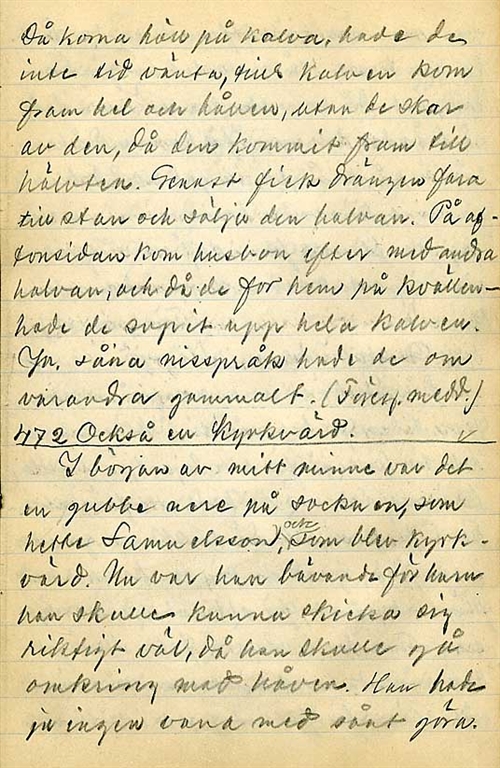 Då korna höll på kalva, hade de
inte tid vänta, tills kalven kom
fram hel och hållen, utan de skar
av den, då den kommit fram till
hälvten. Genast fick drängen fara
till stan och sälja den halvan. På af-
tonsidan kom husbon efter med andra
halvan, och då de for hem på kvällen-
hade de supit upp hela kalven.
Ja, såna misspråk hade de om
varandra gammalt. (Föreg. medd.)
472 Också en Kyrkvärd.
I början av mitt minne var det
en gubbe nere på socknen, som
hette Samuelsson, och som blev kyrk-
värd. Nu var han bävande för huru
han skulle kunna skicka sig
riktigt väl, då han skulle gå
omkring med håven. Han hade
ju ingen vana med sånt göra.